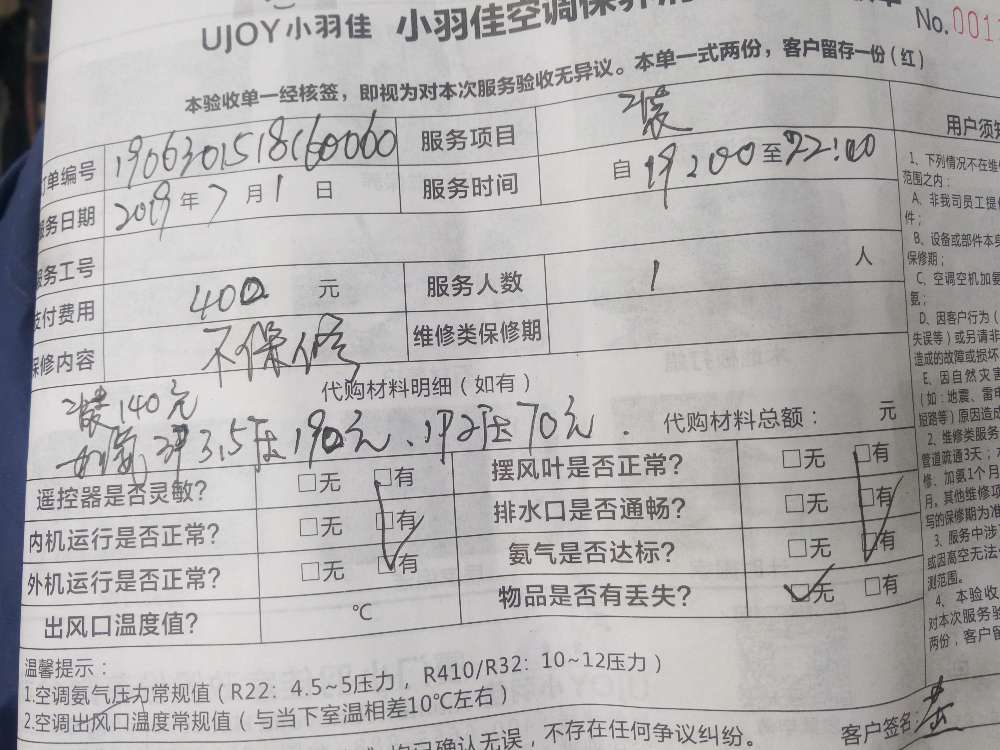 UJOY小羽佳 小羽佳空调保养
No.001
本验收单一经核签，即视为对本次服务验收无异议。本单一式两份，客户留存一份（红）
订单编号 1906301518160060 服务项目 装
服务日期 2019年7月1日 服务时间 自19:00至22:00
服务工号
支付费用 400元 服务人数 1人
保修内容 不保修 维修类保修期
代购材料明细（如有）
装140元
加氨 3.5压190元、1P2压70元. 代购材料总额： 元
遥控器是否灵敏？ □无 □有 摆风叶是否正常？ □无 □有
内机运行是否正常？ □无 □有 排水口是否通畅？ □无 □有
外机运行是否正常？ □无 □有 氨气是否达标？ □无 □有
出风口温度值？ ℃ 物品是否有丢失？ □无 □有
温馨提示：
1.空调氨气压力常规值（R22：4.5~5压力，R410/R32：10~12压力）
2.空调出风口温度常规值（与当下室温相差10℃左右）
均已确认无误，不存在任何争议纠纷。 客户签名：
用户须知
1、下列情况不在维
范围之内：
A、非我司员工提
件；
B、设备或部件本身
保修期；
C、空调空机加氨
氨；
D、因客户行为（
失误等）或另请非
造成的故障或损坏
E、因自然灾害
（如：地震、雷电
短路等）原因造成
2、维修类服务
管道疏通3天；
修、加氨1个月
月，其他维修项
写的保修期为准
3、服务中涉
或因高空无法
测范围。
4、本验收
对本次服务验
两份，客户留